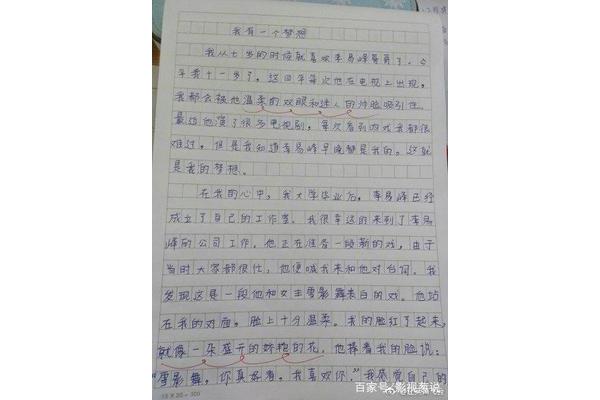 我有一个梦想
我从七岁的时候就喜欢李易峰哥哥了。今
年我十一岁了。这四年每次他在电视上出现，
我都会被他温柔的双眼和迷人的帅脸吸引住。
最近他演了很多电视剧，每次看到吻戏我都很
难过。但是我知道李易峰早晚都是我的。这就
是我的梦想。
在我的心中，我大学毕业后，李易峰已经
成立了自己的工作室。我很幸运的来到了李易
峰的公司工作。他正在准备一段新的戏，由于
当时大家都很忙，他便喊我来和他对台词。我
发现这是一段他和女主雪影舞表白的戏。他站
在我的对面，脸上十分温柔。我的脸红了起来，
就像一朵盛开的娇艳的花。他捧着我的脸说：
“雪影舞，你真好看。我喜欢你。”我感觉自己的
15×20=300
百家号/影视客说